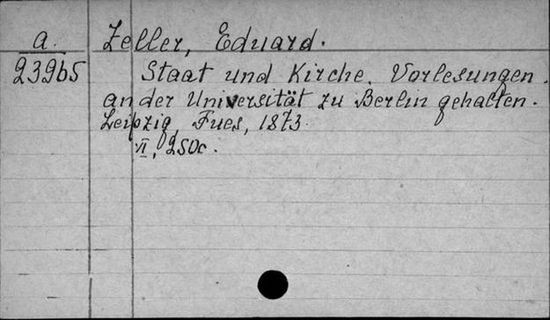 a. Zeller, Eduard.
23965 Staat und Kirche. Vorlesungen
an der Universität zu Berlin gehalten.
Leipzig, Fues, 1873.
VI, 250c.